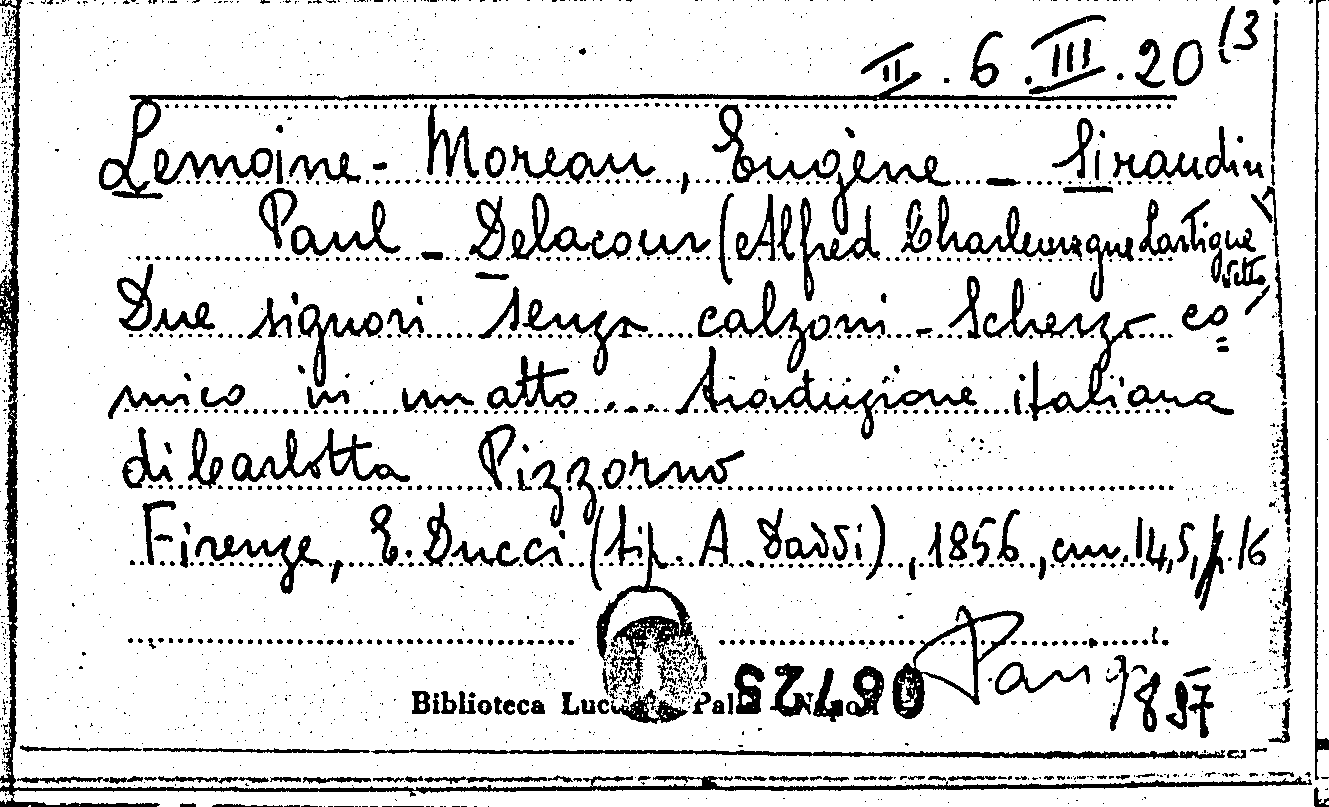 II. 6. III. 20 (3
Lemoine - Moreau, Eugène - Siraudin,
Paul - Delacour (Alfred Charlemagne Lartigue
detto)
Due signori senza calzoni - Scherzo co=
mico in un atto... traduzione italiana
di Carlotta Pizzorno
Firenze, E. Ducci (tip. A. Daddi), 1856, cm. 14,5, p. 16
Biblioteca Palli Napoli
06725
897